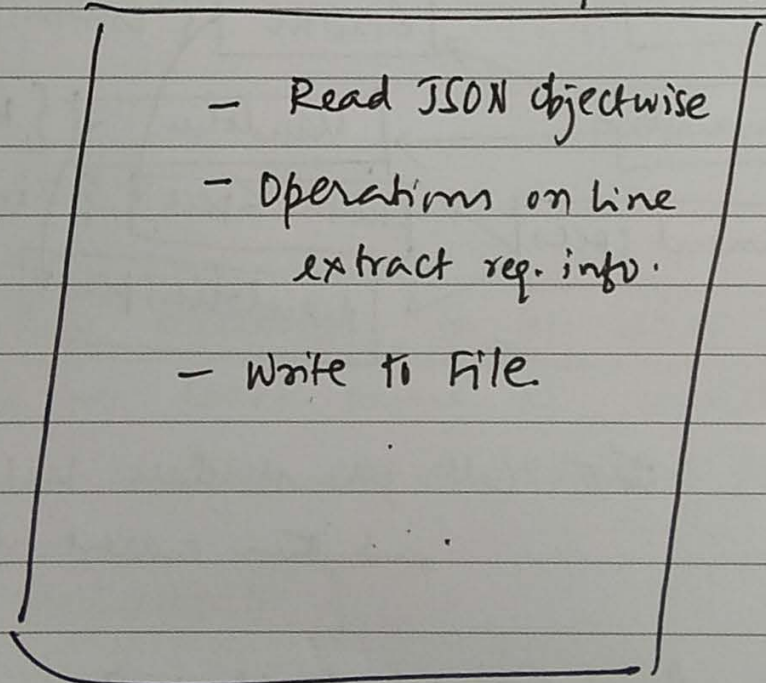 - Read JSON Objectwise
- Operations on line
extract req. info.
- Write to File